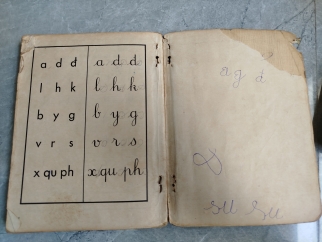 a d d a d d
l h k l h k
b y g b y g
v r s v r s
x qu ph x qu ph
a g